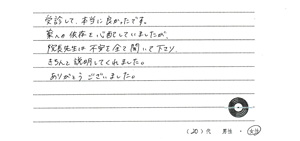 受診して、本当に良かったです。
薬の依存を心配していましたが、
院長先生は不安を全て聞いて下さり
きちんと説明してくれました。
ありがとうございました。
(20)代 男性・女性